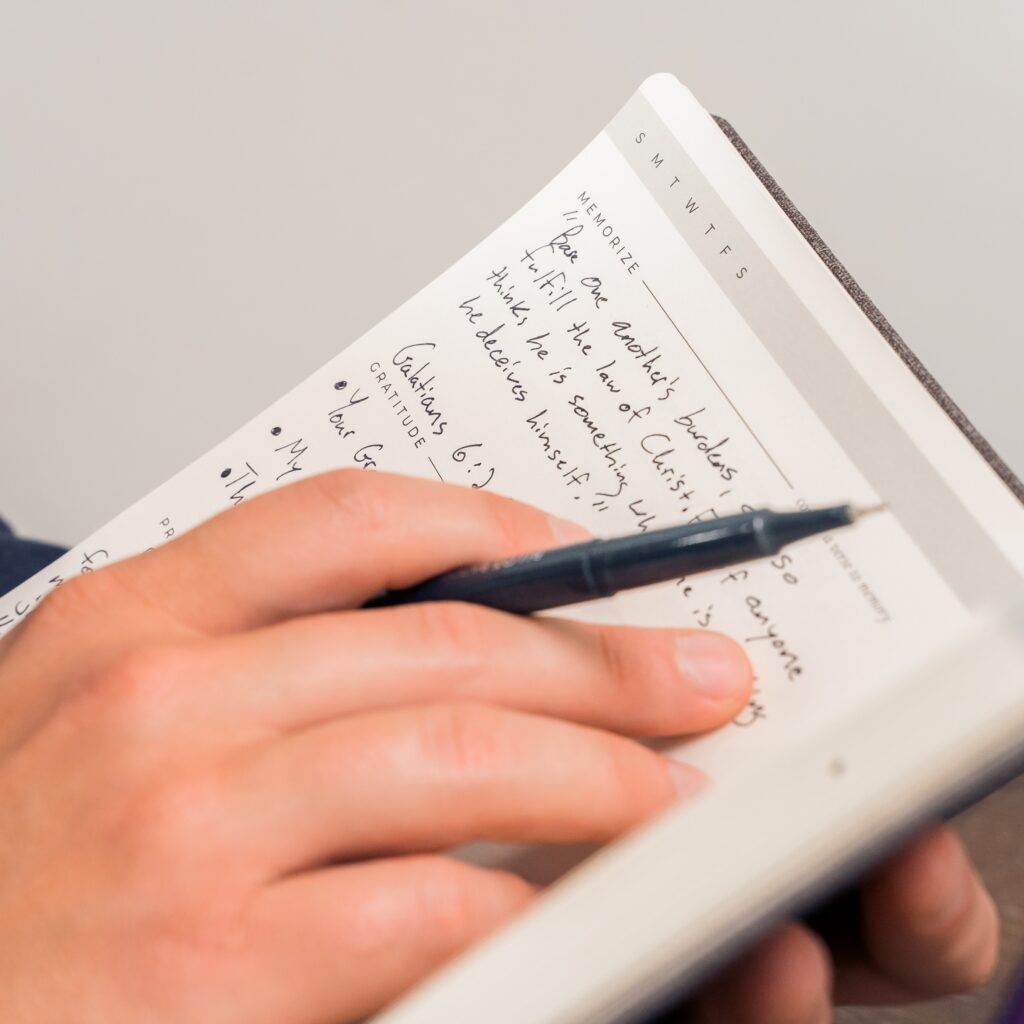 S M T W T F S
MEMORIZE
a verse to memory
"Bare one another's burdens, so
fulfill the law of Christ. if anyone
thinks he is something he is
he deceives himself."
Galatians 6:2
GRATITUDE
• Your Gr
• My
• Th
PR